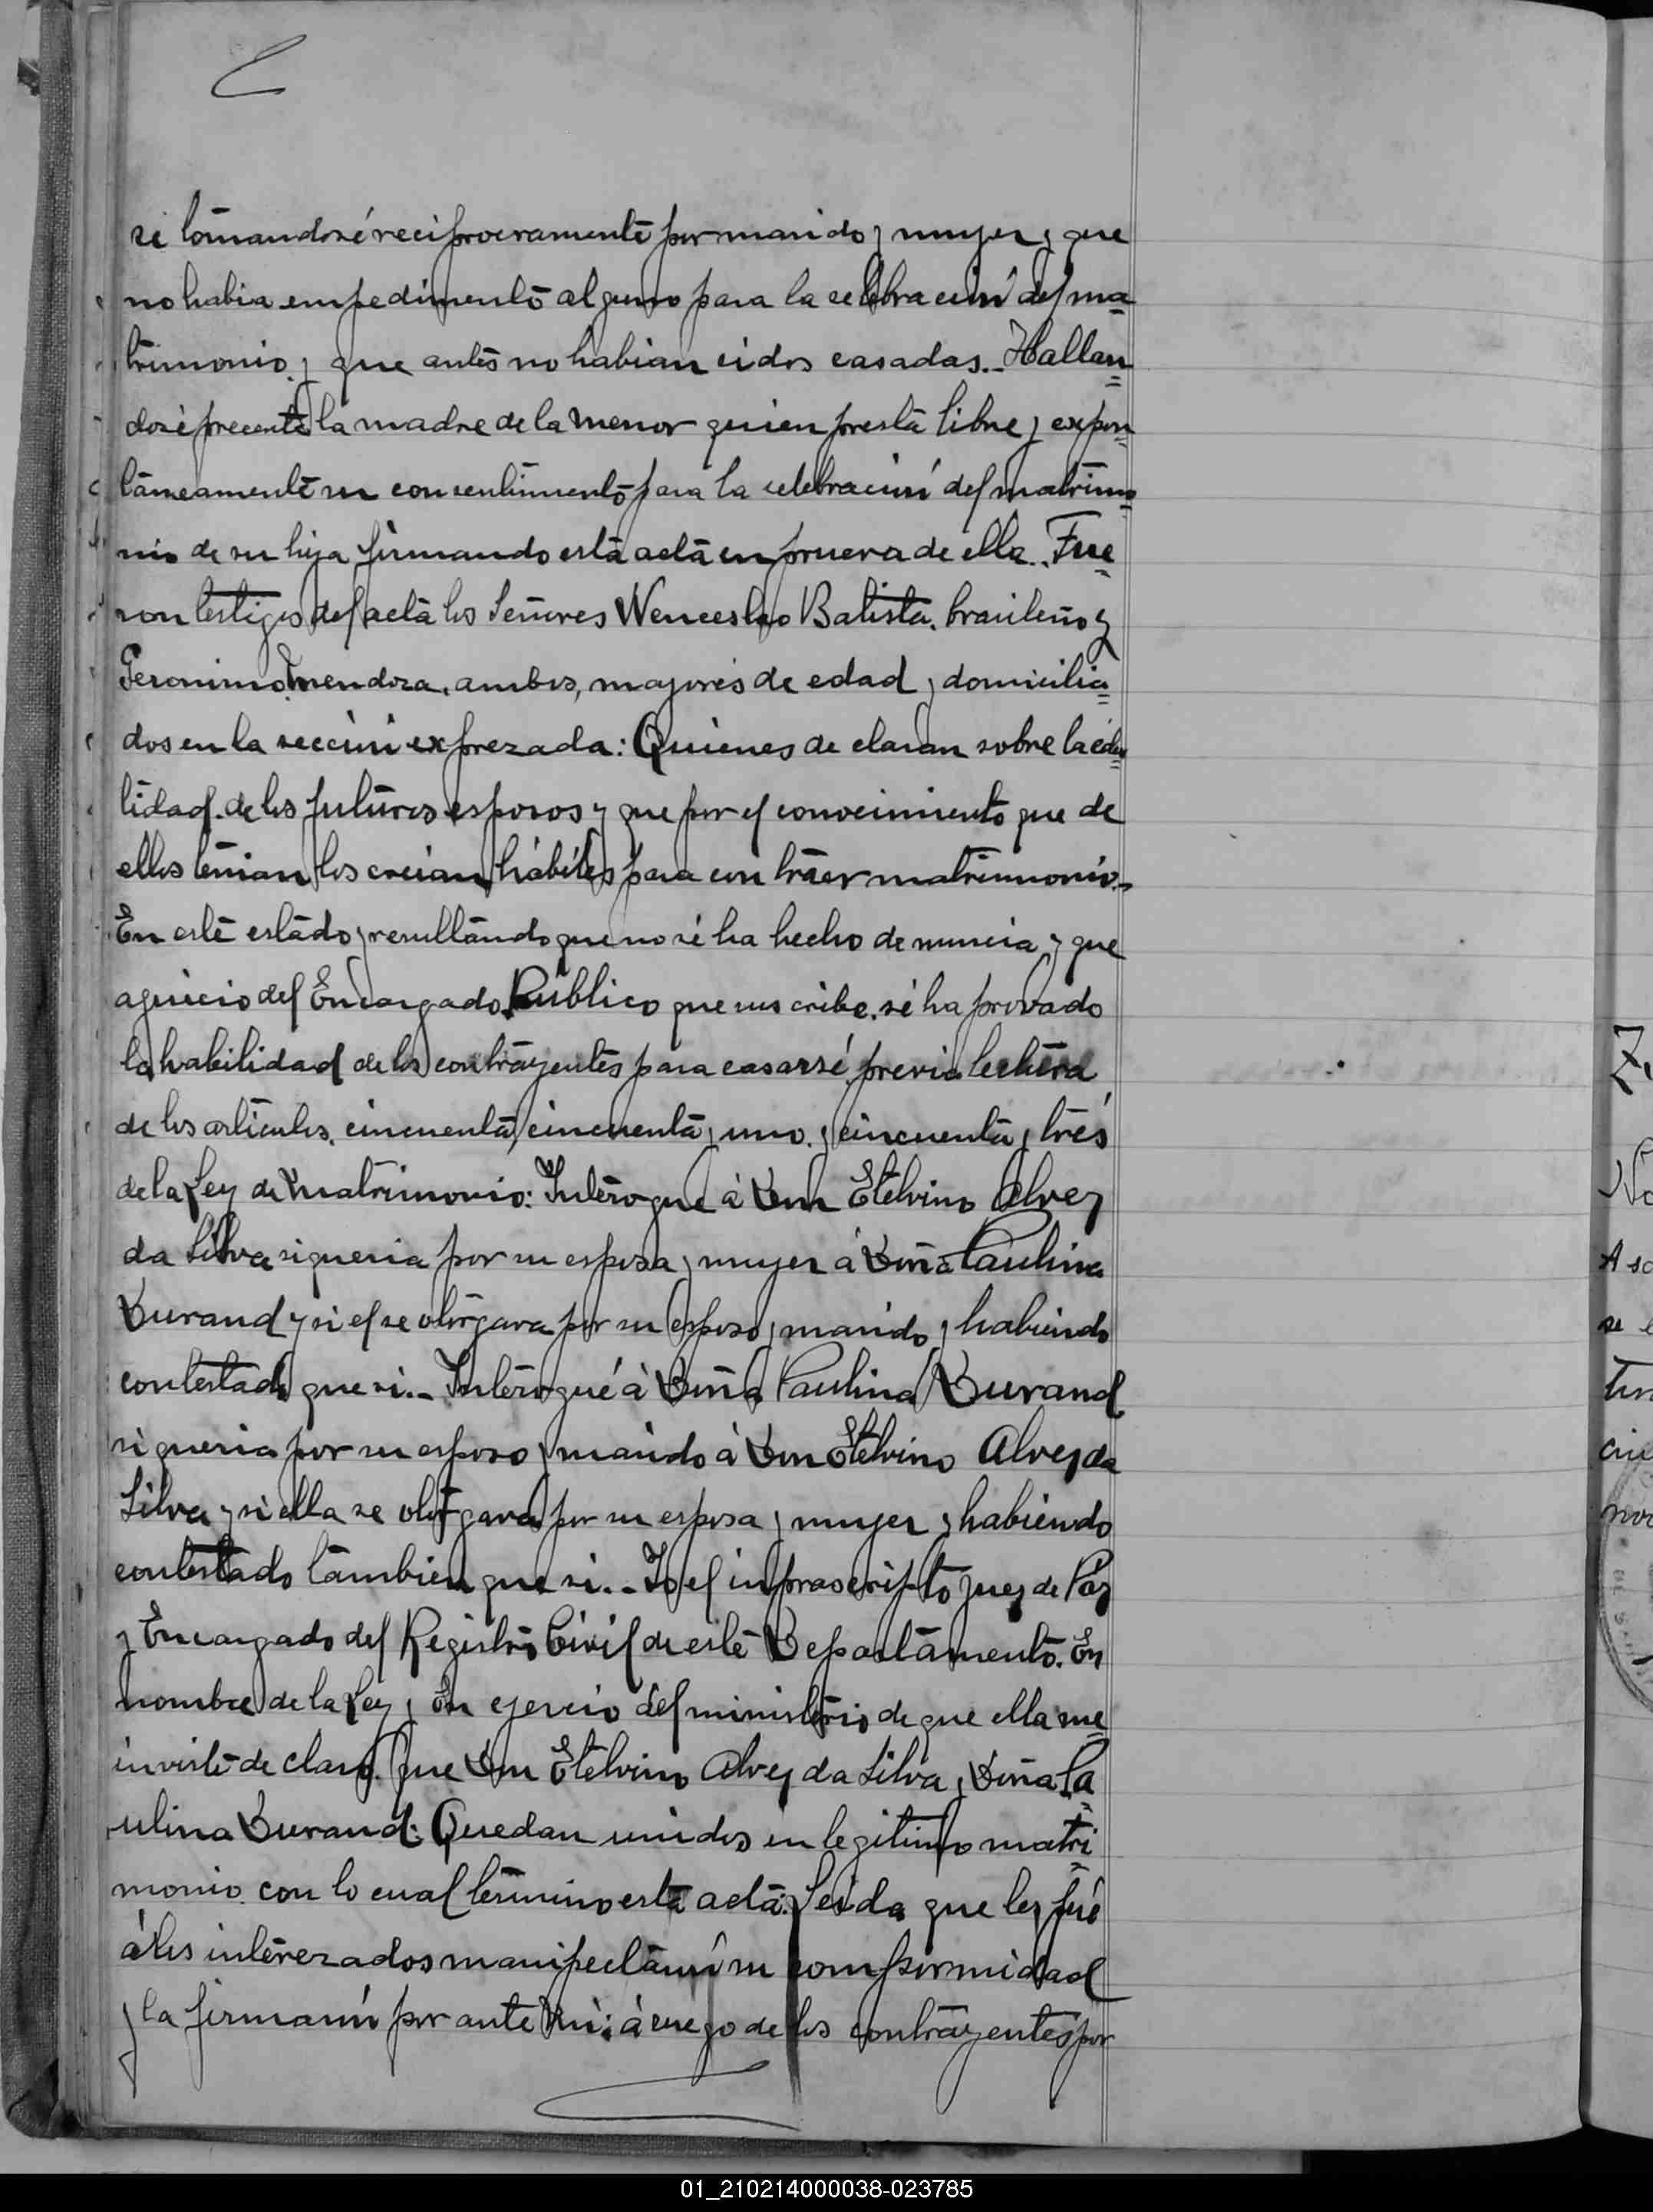 se tomandosé reciprocramente por marido y mujer, y que
no habia empedimento alguno para la celebración del ma=
trimonio y que antes no habian cidos casadas.- Hallan=
dosé precente la madre de la menor quien presta libre y expon=
taneamente su consentimiento para la celebración del matrimo=
nio de su hija firmando esta acta en prueva de ella. Fue=
ron testigos del acta los Señores Wenceslao Batista, brasileño y
Geronimo Mendoza, ambos, mayores de edad y domicilia=
dos en la sección exprezada: Quienes declaran sobre la
lidad de los futuros esposos y que por el conocimiento que de
ellos tenian los creian hábiles para contraer matrimonio.-
En esté estado y resultando que no sé ha hecho denuncia y que
a juicio del Encargado Publico que suscribe, sé ha provado
la habilidad de los contrayentes para casarsé, previa lectura
de los articulos, cincuenta, cincuenta y uno, y cincuenta y trés
de la Ley de Matrimonio: Interogue á Don Etelvino Alvez
da Silva si queria por su esposa y mujer á Doña Paulina
Durand y si el se otorgava por su esposo y marido y habiendo
contestado que si.- Interogué á Doña Paulina Durand
si queria por su esposo y marido á Don Etelvino Alvez da
Silva y si ella se otorgava por su esposa y mujer y habiendo
contestado tambien que si.- Yo el infrascripto Juez de Páz
y Encargado del Registro Civil de esté Departamento. En
nombre de la Ley y En ejercio del ministerio de que ella me
inviste declaro. Que Don Etelvino Alvez da Silva y Doña Pa=
ulina Durand: Quedan unidos en legitimo matri=
monio con lo cual termino esta acta. Leida que les fué
á los interezados manifectarón su comformidad
y la firmarón por ante Mi: á ruego de los contrayentes por
01_210214000038-023785